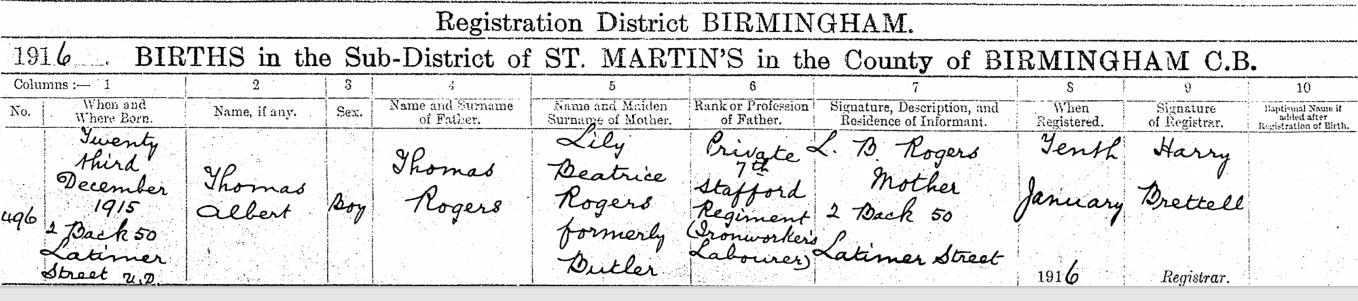 Registration District BIRMINGHAM.
1916. BIRTHS in the Sub-District of ST. MARTIN'S in the County of BIRMINGHAM C.B.
Columns :— 1 2 3 4 5 6 7 8 9 10
No.
When and
Where Born.
Name, if any.
Sex.
Name and Surname
of Father.
Name and Maiden
Surname of Mother.
Rank or Profession
of Father.
Signature, Description, and
Residence of Informant.
When
Registered.
Signature
of Registrar.
Baptismal Name if
added after
Registration of Birth.
496
Twenty
third
December
1915
2 Back 50
Latimer
Street U.D.
Thomas
Albert
Boy
Thomas
Rogers
Lily
Beatrice
Rogers
formerly
Butler
Private
7th
Stafford
Regiment
(Ironworker's
Labourer)
L. B. Rogers
Mother
2 Back 50
Latimer Street
Tenth
January
1916
Harry
Brettell
Registrar.